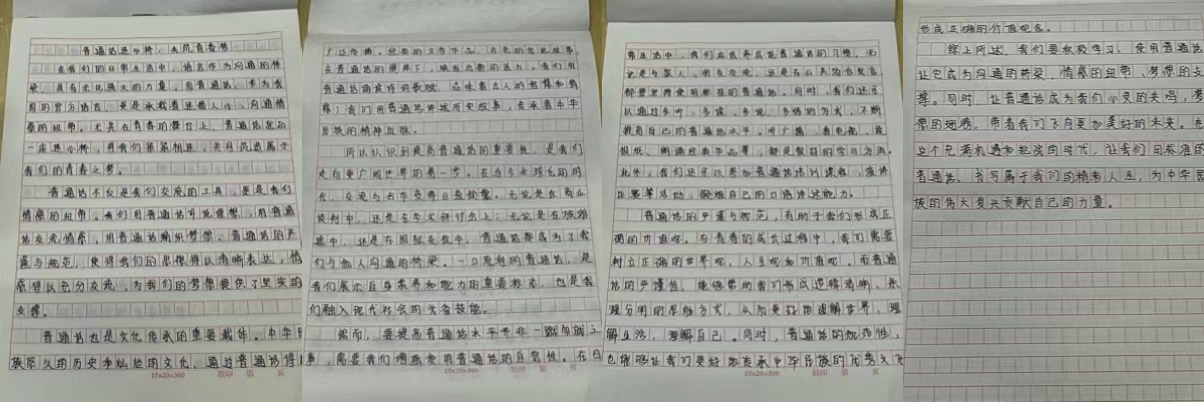 普通话连心桥，共筑青春梦
在我们的日常生活中，语言作为沟通的桥
梁，具有无比强大的力量。而普通话，作为我
国的官方语言，更是承载着连接人心、沟通情
感的纽带。尤其在青春的舞台上，普通话就如
一座连心桥，将我们紧紧相连，共同筑造属于
我们的青春之梦。
普通话不仅是我们交流的工具，更是我们
情感的纽带。我们用普通话
话交流情感，用普通话编织梦想。普通话的严
谨与规范，使得我们的思想得以清晰表达，情
感得以充分交流，为我们的梦想提供了坚实的
支撑。
普通话也是文化传承的重要载体。中华民
族悠久的历史和灿烂的文化，通过普通话得
广泛传播。经典的文学作品、古老的
在普通话的演绎下，焕发出新的活力。我们用
普通话诵读诗词歌赋，品味古人的智慧和
；我们用普通话讲述历史故事，去承着中华
民族的精神血脉。
所以认识到提高普通话的重要性，是我们
走向更广阔世界的第一步。在当今全球化的时
代，交流与合作变得日益频繁。无论是在商业
谈判中，还是在学术研讨会上；无论是在旅游
途中，还是在国际交流中，普通话都成为了我
们与他人沟通的桥梁。一口流利的普通话，是
我们展示自身素养和能力的重要标志，也是我
们融入现代社会的必备技能。
然而，要提高普通话水平并非一蹴而就之
事，需要我们增强使用普通话的自觉性。在日
常生活中，我们应该养成说普通话的习惯，无
论是与家人、朋友交流，还是在公共场合发言，
都要坚持使用标准的普通话。同时，我们还可
以通过多听、多读、多说、多练的方式，不断
提高自己的普通话水平。听广播、看电视、读
报纸、朗诵经典作品等，都是很好的学习方法。
此外，我们还可以参加普通话培训课程、演讲
比赛等活动，锻炼自己的口语表达能力。
普通话的严谨与规范，有助于我们形成正
确的价值观。在青春的成长过程中，我们需要
树立正确的世界观、人生观和价值观。而普通
话的严谨性，能够帮助我们形成逻辑清晰、条
理分明的思维方式，从而更好地理解世界、理
解生活、理解自己。同时，普通话的规范性，
也能够让我们更好地去承中华民族的优秀文
形成正确的价值观念。
综上所述，我们要积极学习、使用普通话
让它成为沟通的桥梁、情感的纽带、梦想的支
撑。同时，让普通话成为我们心灵的共鸣，梦
想的翅膀，带着我们飞向更加美好的未来。在
这个充满机遇和挑战的时代，让我们用标准的
普通话，书写属于我们的精彩人生，为中华民
族的伟大复兴贡献自己的力量。
15×20=300
15×20=300
15×20=300